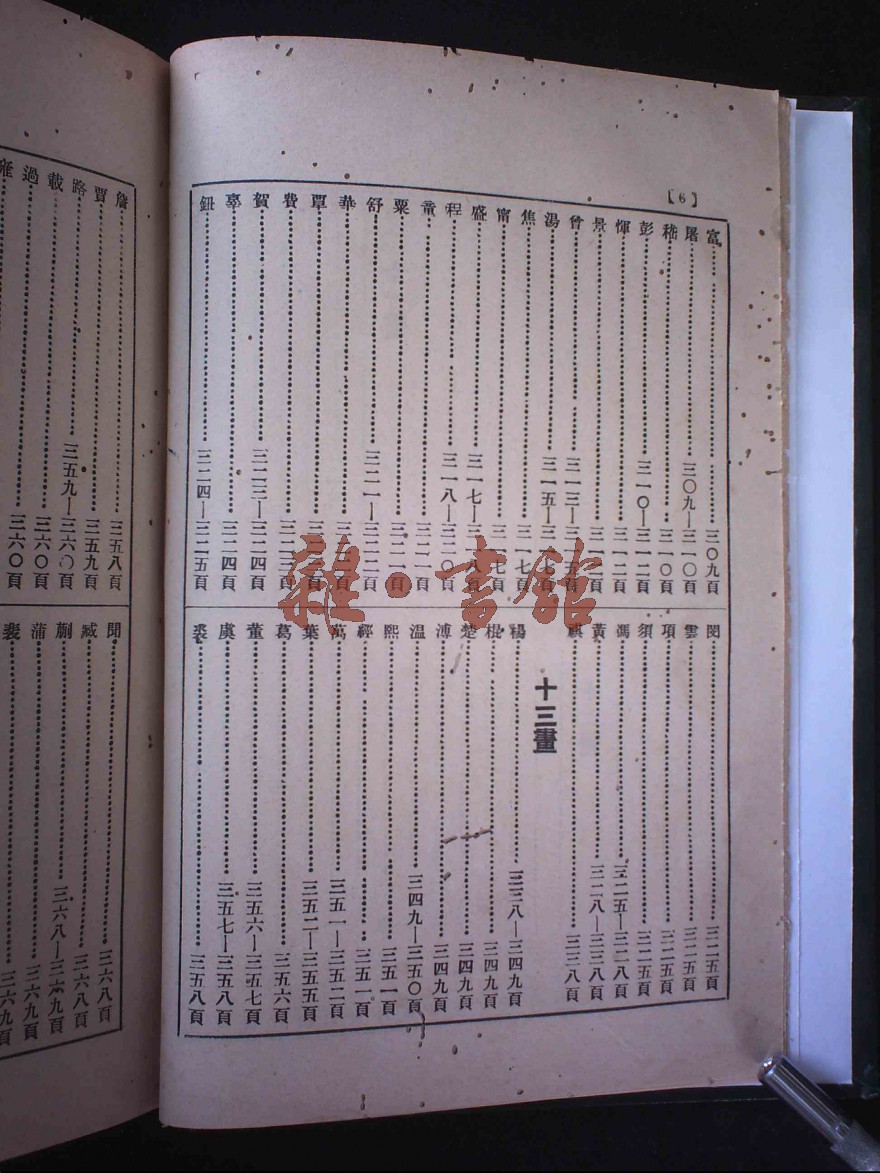 【6】
富 三〇九頁
屠 三〇九—三一〇頁
嵇 三一〇頁
彭 三一〇—三一二頁
惲 三一二頁
景 三一三頁
曾 三一三—三一五頁
湯 三一五—三一七頁
焦 三一七頁
甯 三一七頁
盛 三一七—三一八頁
程 三一八—三二〇頁
童 三二一頁
粟 三二一頁
舒 三二一—三二二頁
華
覃
費 三二三頁
賀 三二三—三二四頁
辜 三二四頁
鈕 三二四—三二五頁
閔 三二五頁
雲 三二五頁
項 三二五頁
須 三二五頁
馮 三二五—三二八頁
黃 三二八—三三八頁
祺 三三八頁
十三畫
楊 三三八—三四九頁
楚 三四九頁
溥 三四九頁
温 三四九—三五〇頁
熙 三五一頁
經 三五一頁
萬 三五一—三五二頁
葉 三五二—三五五頁
葛 三五六頁
董 三五六—三五七頁
虞 三五七—三五八頁
裘 三五八頁
詹 三五八頁
賈 三五九頁
路 三五九—三六〇頁
載 三六〇頁
過 三六〇頁
雍
聞 三六八頁
臧 三六八頁
蒯 三六八—三六九頁
蒲 三六九頁
裴 三六九頁
雜·書館